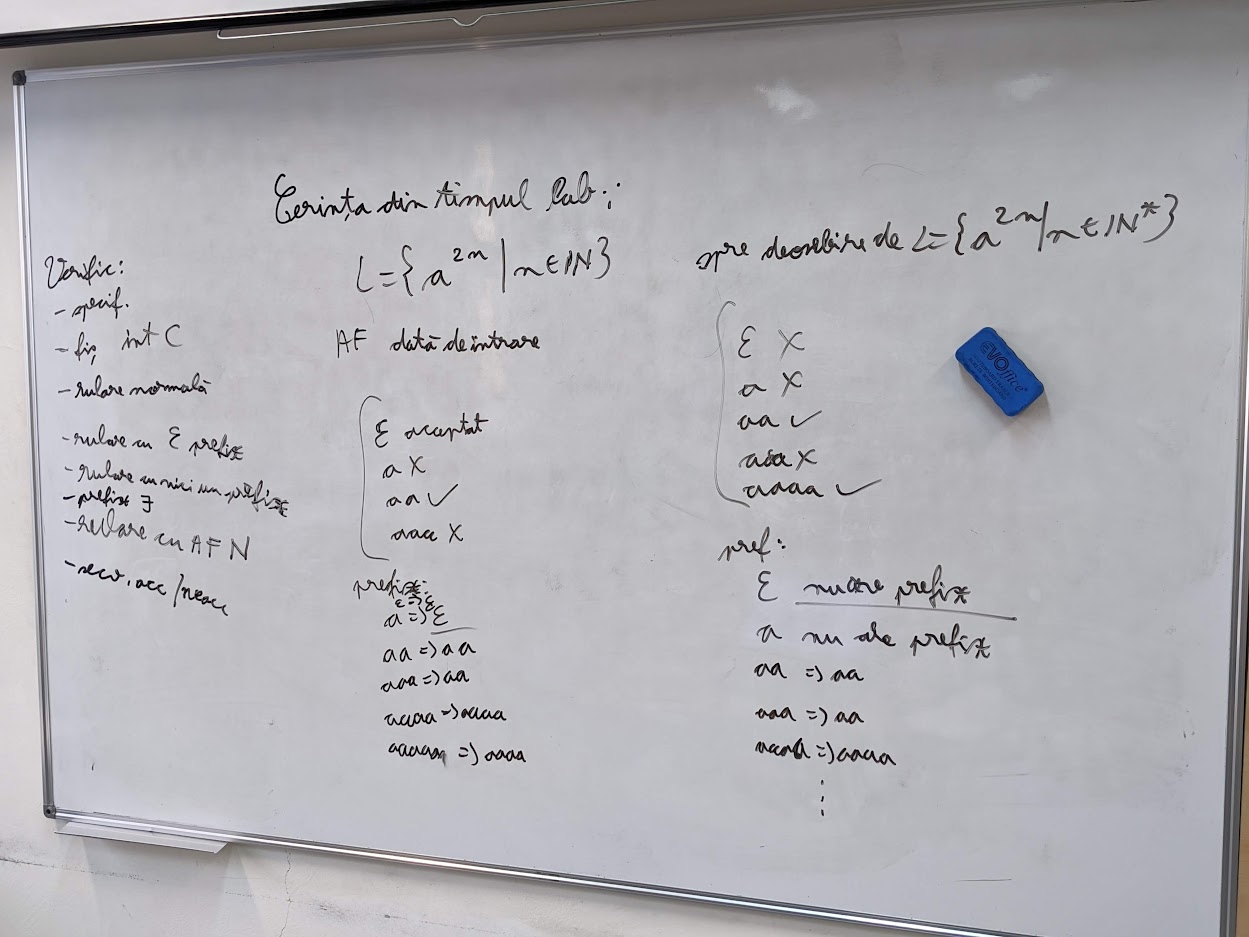 Cerința din timpul lab.:
Verific:
- specif.
- fiș int C
- rulare normală
- rulare cu ε prefix
- rulare cu nici un prefix
- prefix ∃
- rulare cu AFN
- secv. acc/neacc
L={a^2n | n∈IN}
AF dată de intrare
ε acceptat
a X
aa ✓
aaa X
prefixe:
ε=>ε
a => ε
aa => aa
aaa => aa
aaaa => aaaa
aaaaa => aaaa
spre deosebire de L={a^2n | n∈IN*}
ε X
a X
aa ✓
aaa X
aaaa ✓
pref:
ε nu are prefix
a nu are prefix
aa => aa
aaa => aa
aaaa => aaaa
⋮
EVOffice